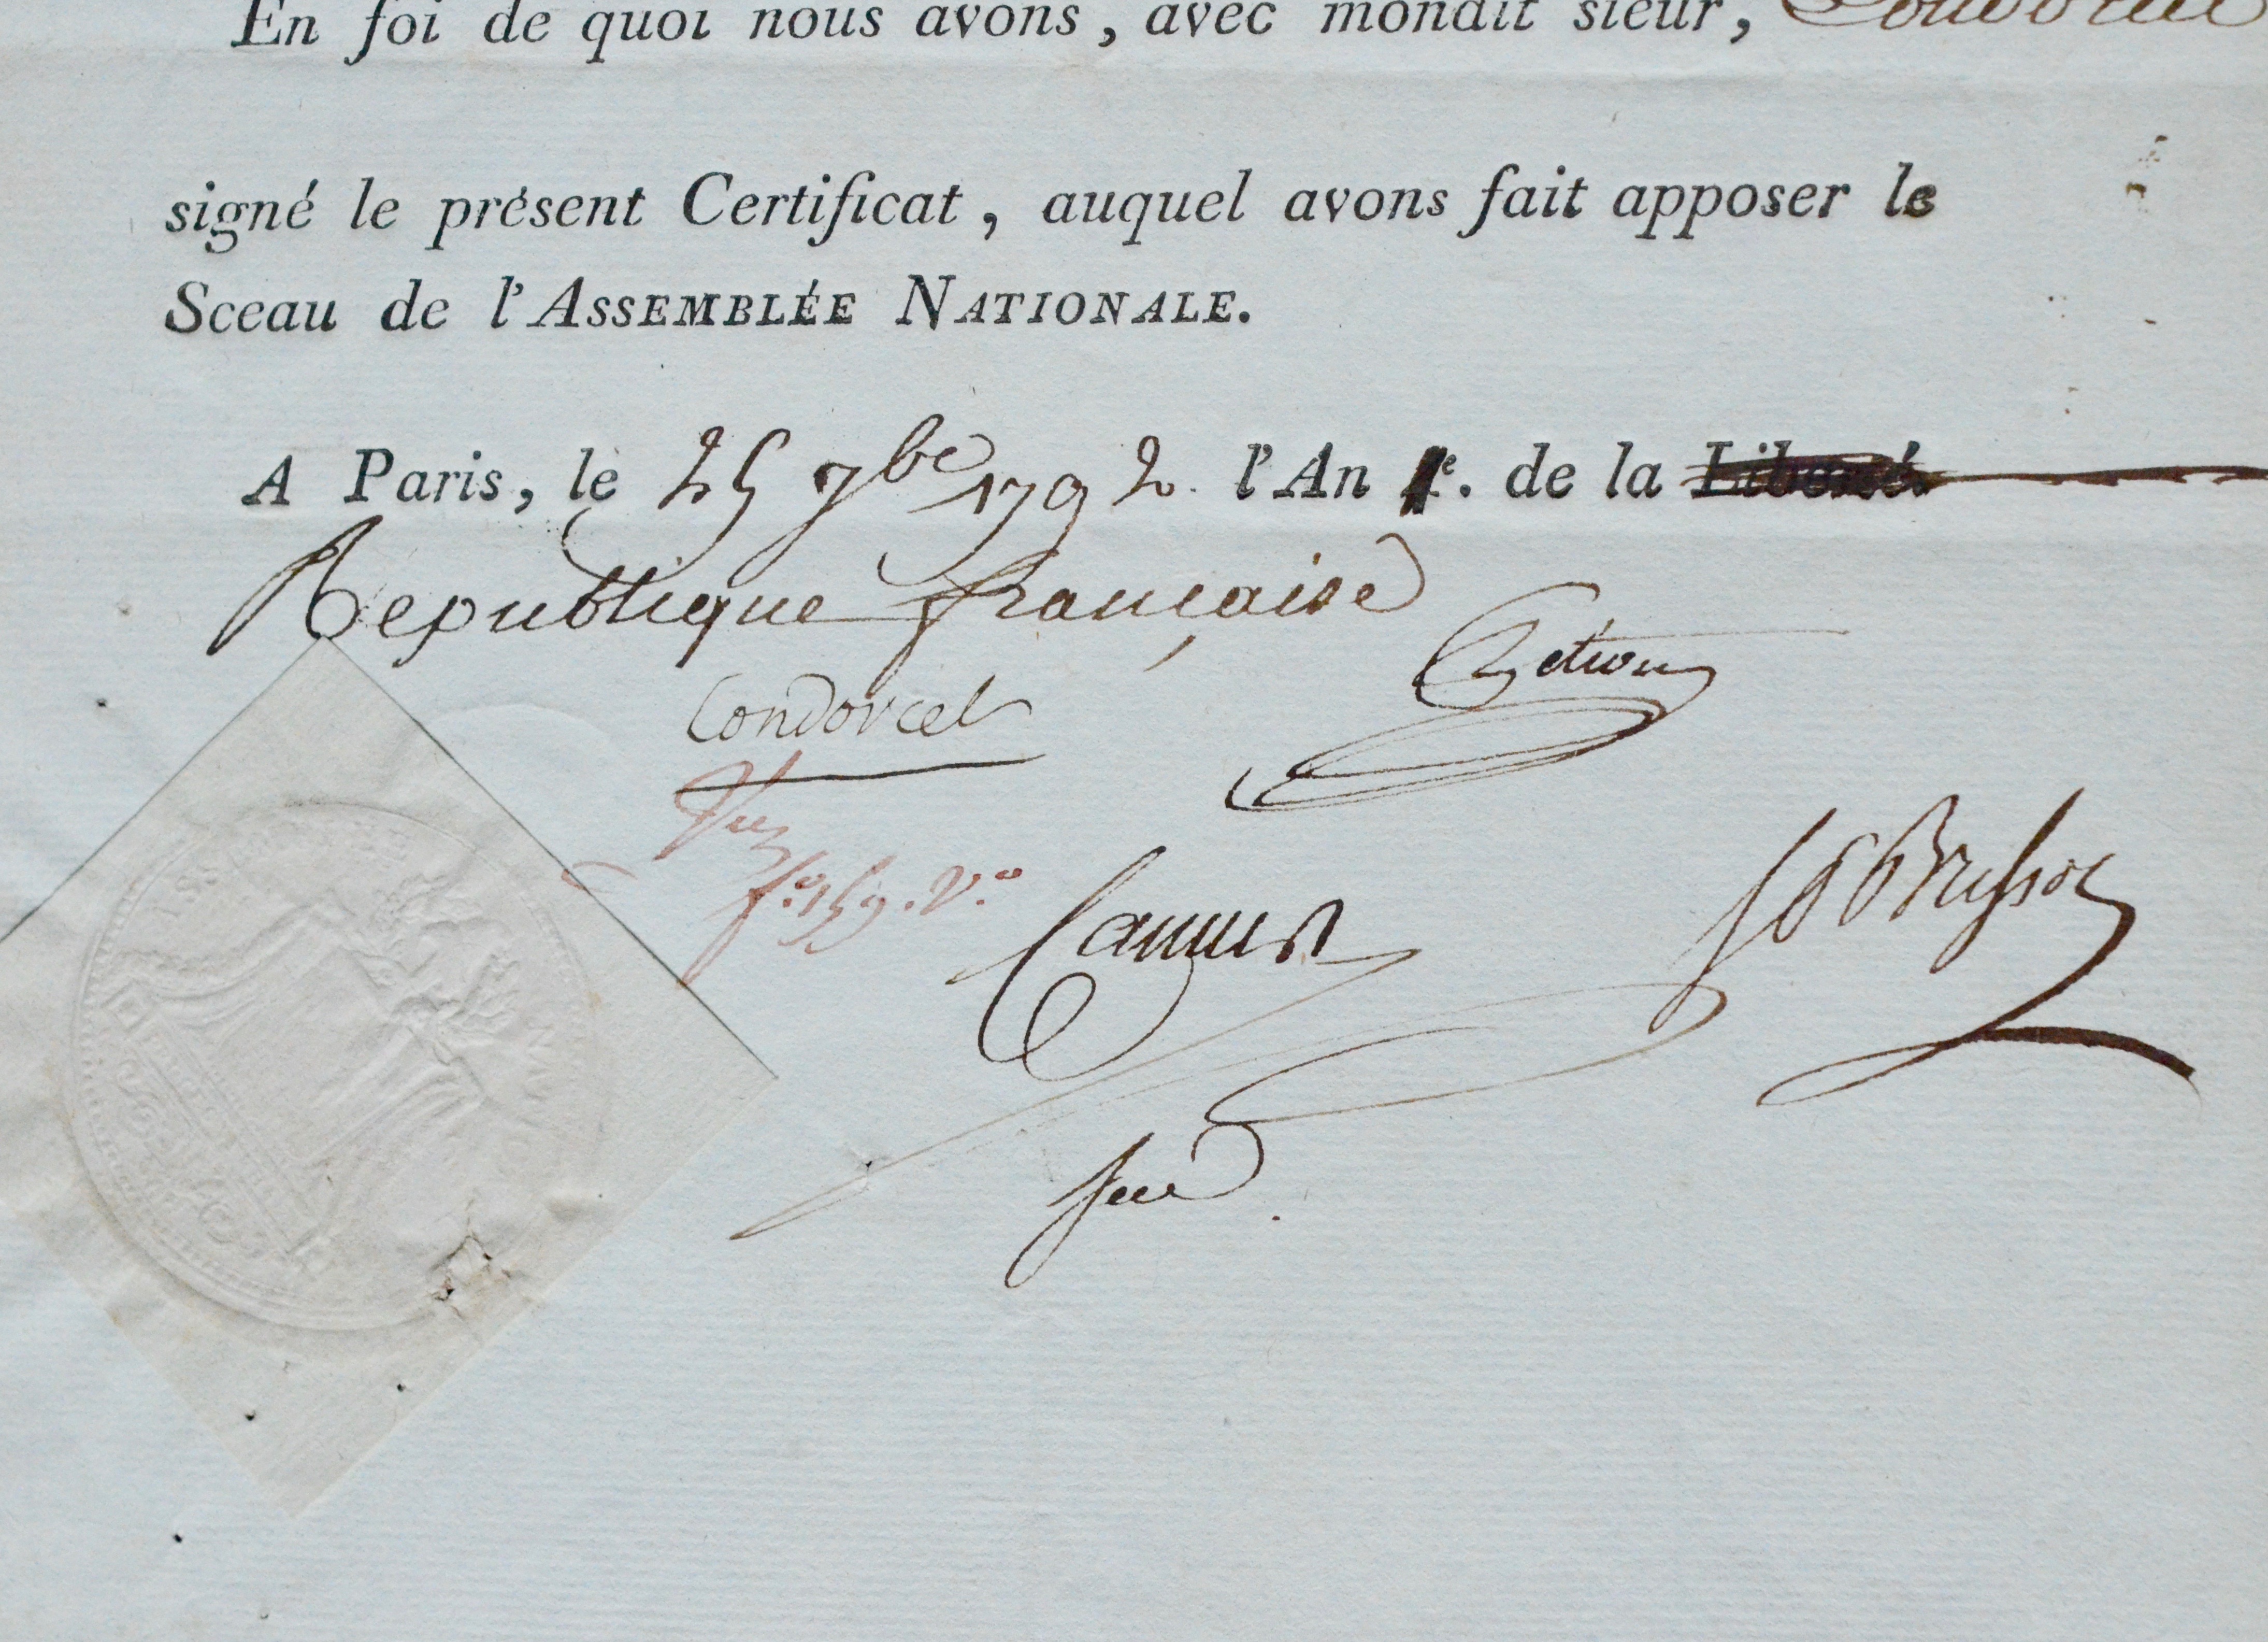 En foi de quoi nous avons, avec mondit sieur,
signé le présent Certificat, auquel avons fait apposer le
Sceau de l'ASSEMBLÉE NATIONALE.
A Paris, le 25 7bre 1792 l'An 1e. de la Liberté.
Republique française
Condorcet
Petion
Vu
fo. 159. Vo.
Camus
J P Brissot